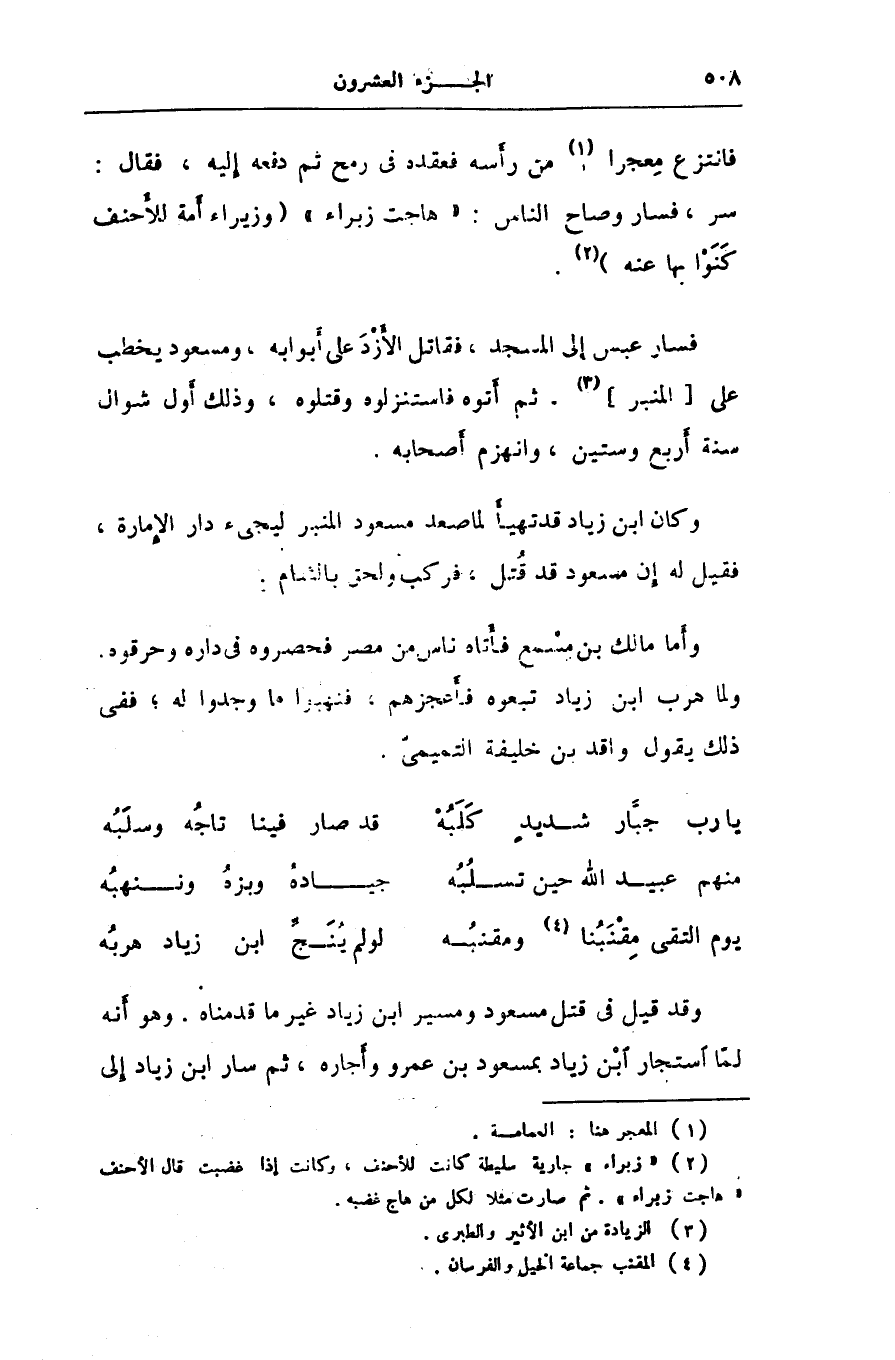 ٥٠٨
الجـــزء العشرون
فانتزع مِعجرا (١) من رأسه فعقده فى رمح ثم دفعه إليه ، فقال :
سر ، فسار وصاح الناس : « هاجت زبراء » (وزيراء أمة للأحنف
كَنَوْا بها عنه )(٢) .
فسار عبس إلى المسجد ، فقاتل الأَزْدَ على أَبوابه ، ومسعود يخطب
على [ المنبر ](٣) . ثم أَتوه فاستنزلوه وقتلوه ، وذلك أَول شوال
سنة أَربع وستين ، وانهزم أَصحابه .
وكان ابن زياد قد تهيأَ لما صعد مسعود المنبر ليجىء دار الإمارة ،
فقيل له إن مسعود قد قُتل ، فركب ولحق بالشام .
وأَما مالك بن مِسْمع فأَتاه ناس من مضر فحصروه فى داره وحرقوه .
ولما هرب ابن زياد تبعوه فأَعجزهم ، فنهبوا ما وجدوا له ؛ ففى
ذلك يقول واقد بن خليفة التميمىّ .
يا رب جبَّار شـديدٍ كَلَبُهْ قد صار فينا تاجُه وسلَبُه
منهم عبيـد الله حين تسـلُبُه جيـــادهُ وبزهُ ونـــنهبُه
يوم التقى مِقْنَبُنا (٤) ومقنبُـه لو لم يُنَـجِّ ابن زياد هربُه
وقد قيل فى قتل مسعود ومسير ابن زياد غير ما قدمناه . وهو أَنه
لمّا ٱستجار ٱبْن زياد بمسعود بن عمرو وأَجاره ، ثم سار ابن زياد إلى
(١) المعجر هنا : العمامـة .
(٢) « زبراء » جارية سليطة كانت للأحنف ، وكانت إذا غضبت قال الأحنف
« هاجت زبراء » . ثم صارت مثلا لكل من هاج غضبه .
(٣) الزيادة من ابن الأثير والطبرى .
(٤) المقنب جماعة الخيل والفرسان .